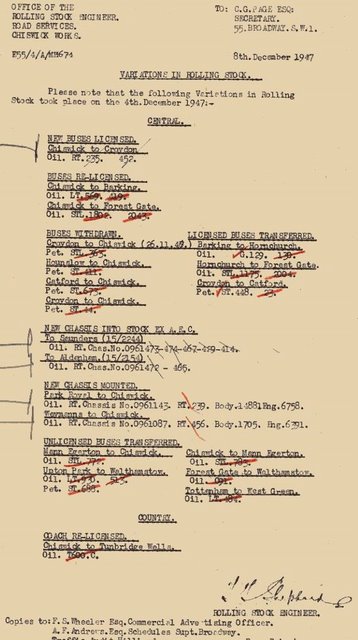 OFFICE OF THE
ROLLING STOCK ENGINEER.
ROAD SERVICES.
CHISWICK WORKS.
TO :- C.G.PAGE ESQ:
SECRETARY.
55,BROADWAY.S.W.1.
8th.December 1947
VARIATIONS IN ROLLING STOCK.
Please note that the following Variations in Rolling
Stock took place on the 4th.December 1947:-
CENTRAL.
NEW BUSES LICENSED.
Chiswick to Croydon
Oil. RT.235. 452.
BUSES RE-LICENSED.
Chiswick to Barking.
Oil. LT.
Chiswick to Forest Gate.
Oil. STL.1802. 2043.
BUSES WITHDRAWN.
Croydon to Chiswick (26.11.47.)
Pet. STL.363.
Hounslow to Chiswick.
Pet. STL.411.
Catford to Chiswick.
Pet. STL.673.
Croydon to Chiswick.
Pet. ST.44.
LICENSED BUSES TRANSFERRED.
Barking to Hornchurch.
Oil. G.129. 130.
Hornchurch to Forest Gate.
Oil. STL.1175. 2004.
Croydon to Catford.
Pet. ST.448.
NEW CHASSIS INTO STOCK EX A.E.C.
To Saunders (15/2244)
Oil. RT.Chas.No.0961473-474-467-459-414.
To Aldenham.(15/2154)
Oil. RT.Chas.No.0961472 - 465.
NEW CHASSIS MOUNTED.
Park Royal to Chiswick.
Oil. RT.Chassis No.0961143. RT.239. Body.1488 Eng.6758.
Weymanns to Chiswick.
Oil. RT.Chassis No.0961087. RT.456. Body.1705. Eng.6391.
UNLICENSED BUSES TRANSFERRED.
Mann Egerton to Chiswick.
Oil. STL.
Union Park to Walthamstow.
Oil. LT.
Pet. ST.688.
Chiswick to Mann Egerton.
Oil. STL.783.
Forest Gate to Walthamstow.
Oil.
Tottenham to West Green.
Oil. LT.184.
COUNTRY.
COACH RE-LICENSED.
Chiswick to Tunbridge Wells.
Oil. T600.C.
ROLLING STOCK ENGINEER.
Copies to: F.S.Wheeler Esq.Commercial Advertising Officer.
A.F.Andrews.Esq.Schedules Supt.Broadway.